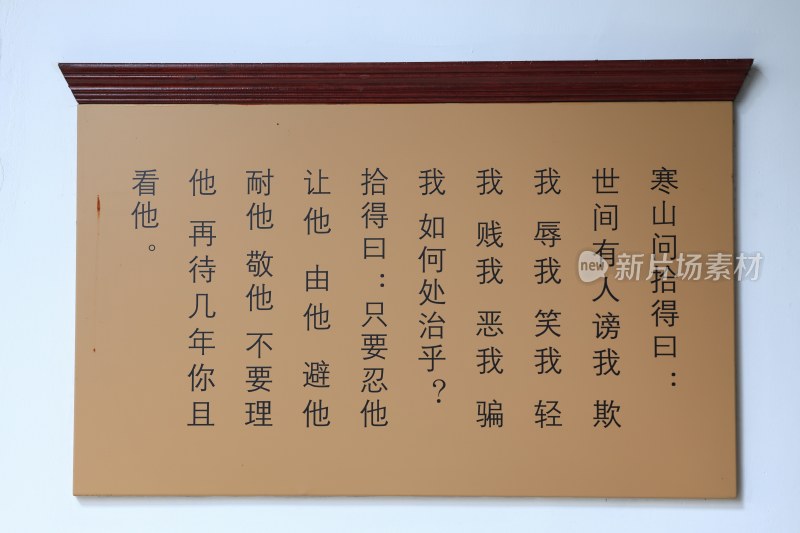 寒山问拾得曰：
世间有人谤我 欺
我 辱我 笑我 轻
我 贱我 恶我 骗
我 如何处治乎？
拾得曰：只要忍他
让他 由他 避他
耐他 敬他 不要理
他 再待几年你且
看他。
new 新片场素材